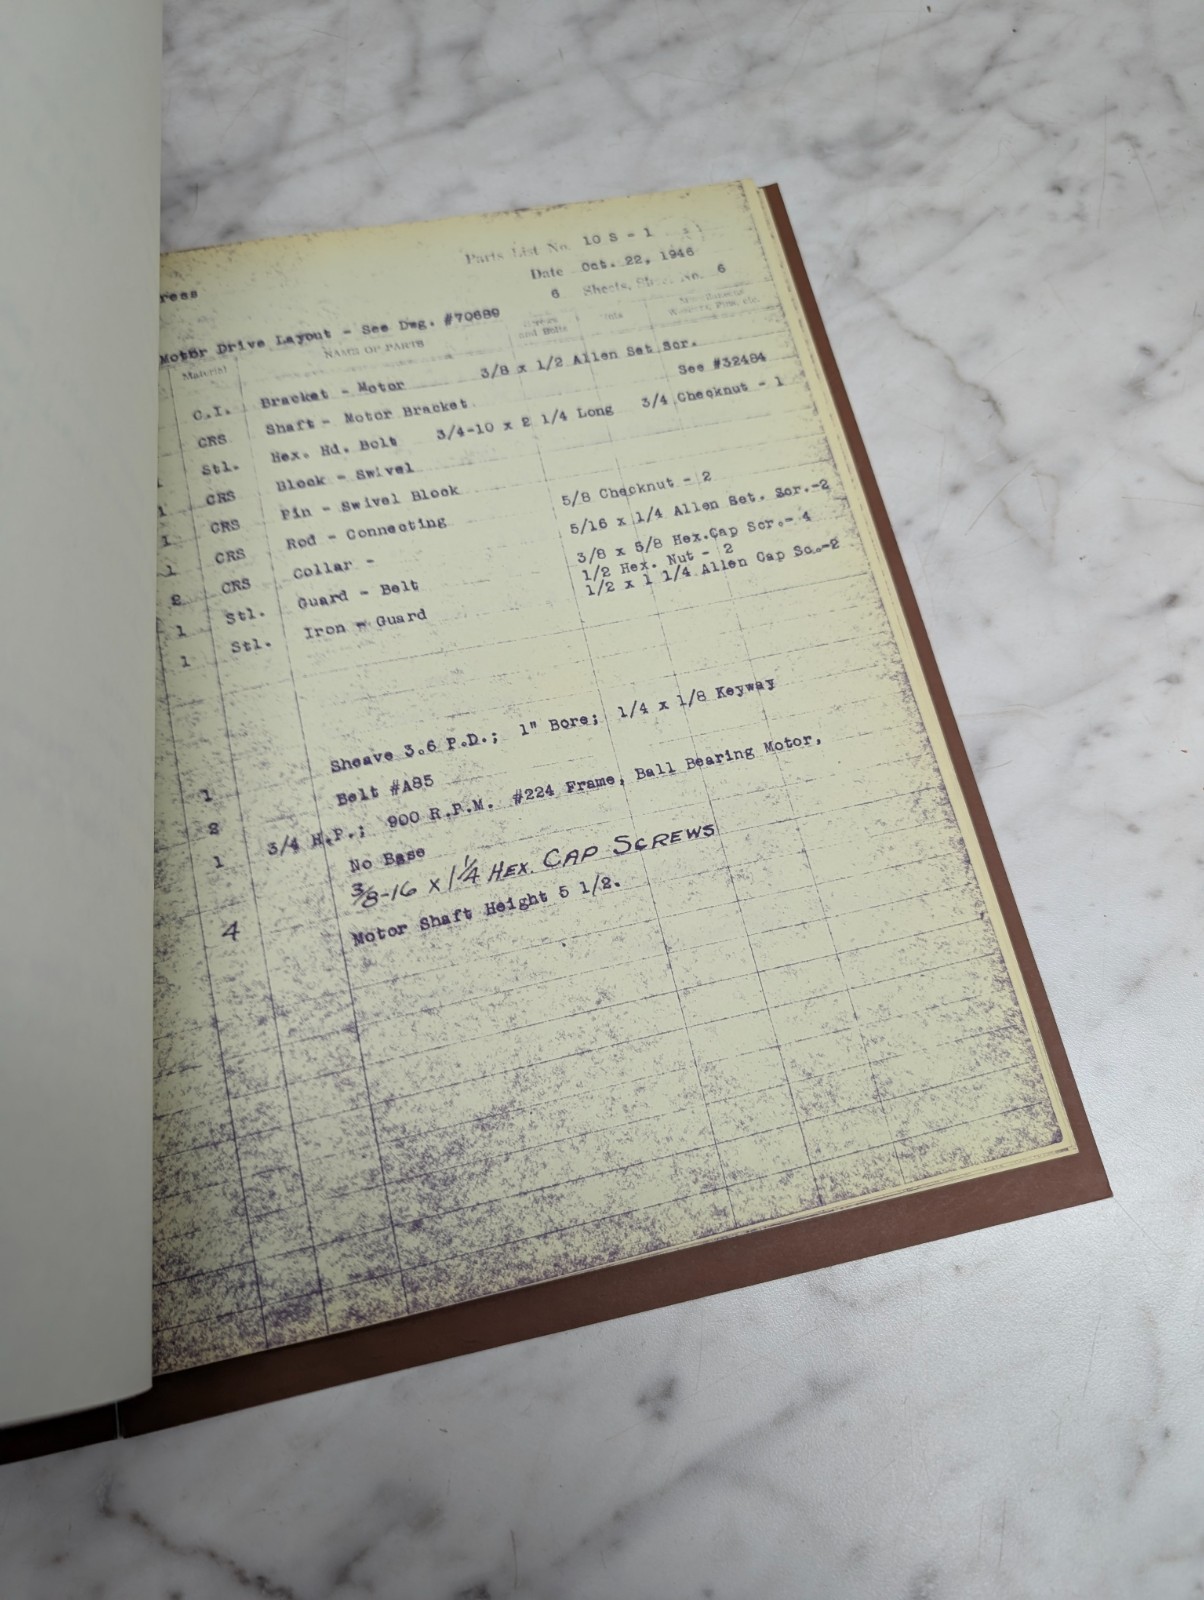 Parts List No. 10 S - 1
Date Oct. 22, 1946
ress
6 Sheets, No. 6
Motor Drive Layout - See Dwg. #70689
Material NAME OF PARTS and Bolts
C.I. Bracket - Motor 3/8 x 1/2 Allen Set Scr.
CRS Shaft - Motor Bracket See #32484
Stl. Hex. Hd. Bolt 3/4-10 x 2 1/4 Long 3/4 Checknut - 1
1 CRS Block - Swivel
1 CRS Pin - Swivel Block
1 CRS Rod - Connecting 5/8 Checknut - 2
2 CRS Collar - 5/16 x 1/4 Allen Set. Scr.-2
1 Stl. Guard - Belt 3/8 x 5/8 Hex.Cap Scr.- 4
1/2 Hex. Nut - 2
1 Stl. Iron - Guard 1/2 x 1 1/4 Allen Cap Sc.-2
1 Sheave 3.6 P.D.; 1" Bore; 1/4 x 1/8 Keyway
2 Belt #A85
1 3/4 H.P.; 900 R.P.M. #224 Frame, Ball Bearing Motor,
No Base
4 3/8-16 x 1 1/4 HEX. CAP SCREWS
Motor Shaft Height 5 1/2.